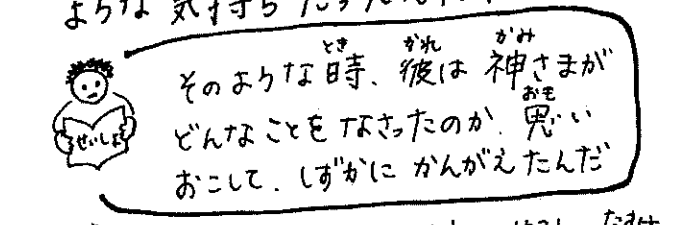 ような気持ち
せいしょ
そのような時、彼は神さまが
どんなことをなさったのか、思い
おこして、しずかにかんがえたんだ